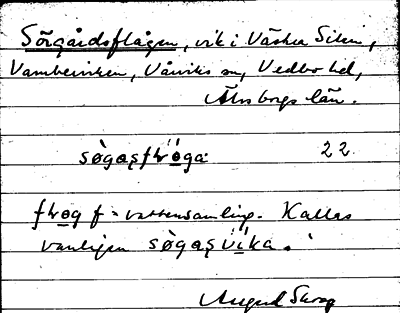 Sörgårdsflågen, vik i Västra Silen,
Vambeviken, Vårviks sn, Vedbo hd,
Älvsborgs län.
sògaṣflrö̀ga: 22.
flrog f = vattensamling. Kallas
vanligen sògaṣvika.
August Savg